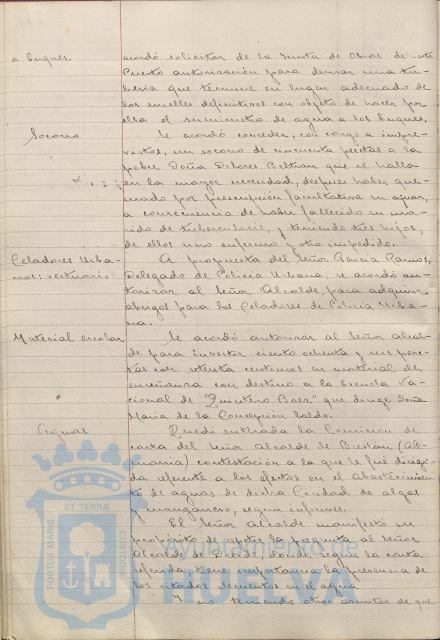 a buques.
acordó solicitar de la Junta de Obras de este
Puerto autorización para derivar una tu-
beria que termine en lugar adecuado de
los muelles definitivos con objeto de hacer por
ella el suministro de agua a los buques.
Socorro
Se acordó conceder, con cargo a impre-
vistos, un socorro de cincuenta pesetas a la
pobre Doña Dolores Beltran que se halla
en la mayor necesidad, despues haber que-
mado por prescripción facultativa su ajuar,
a consecuencia de haber fallecido su ma-
rido de tuberculosis, y teniendo tres hijos,
de ellos uno enfermo y otro impedido.
Celadores Urba-
nos: vestuario
A propuesta del Señor Garcia Ramos,
Delegado de Policia Urbana, se acordó au-
torizar al Señor Alcalde, para adquirir
abrigos para los Celadores de Policia Urba-
na.
Material escolar
Se acordó autorizar al Señor Alcal-
de para invertir ciento ochenta y seis pese-
tas con setenta centimos en material de
enseñanza con destino a la Escuela Va-
cacional de "Quintero Baez" que dirige Doña
Maria de la Concepción Saldo.
Aguas
Quedó enterada la Comisión de
carta del Señor Alcalde de (Ale-
mania) contestación a la que le fué dirigi-
da referente a los efectos en el Abastecimien-
to de aguas de dicha Ciudad de algas
y manganeso, segun informes.
El Señor Alcalde manifestó su
propósito de repetir la pregunta al Señor
Alcalde de donde, según la carta
referida, tiene importancia la presencia de
los citados elementos en el agua
Y no teniendo otros asuntos de que
PORTUS MARIS ET TERRÆ CUSTODIA
Ayuntamiento de
HUELVA